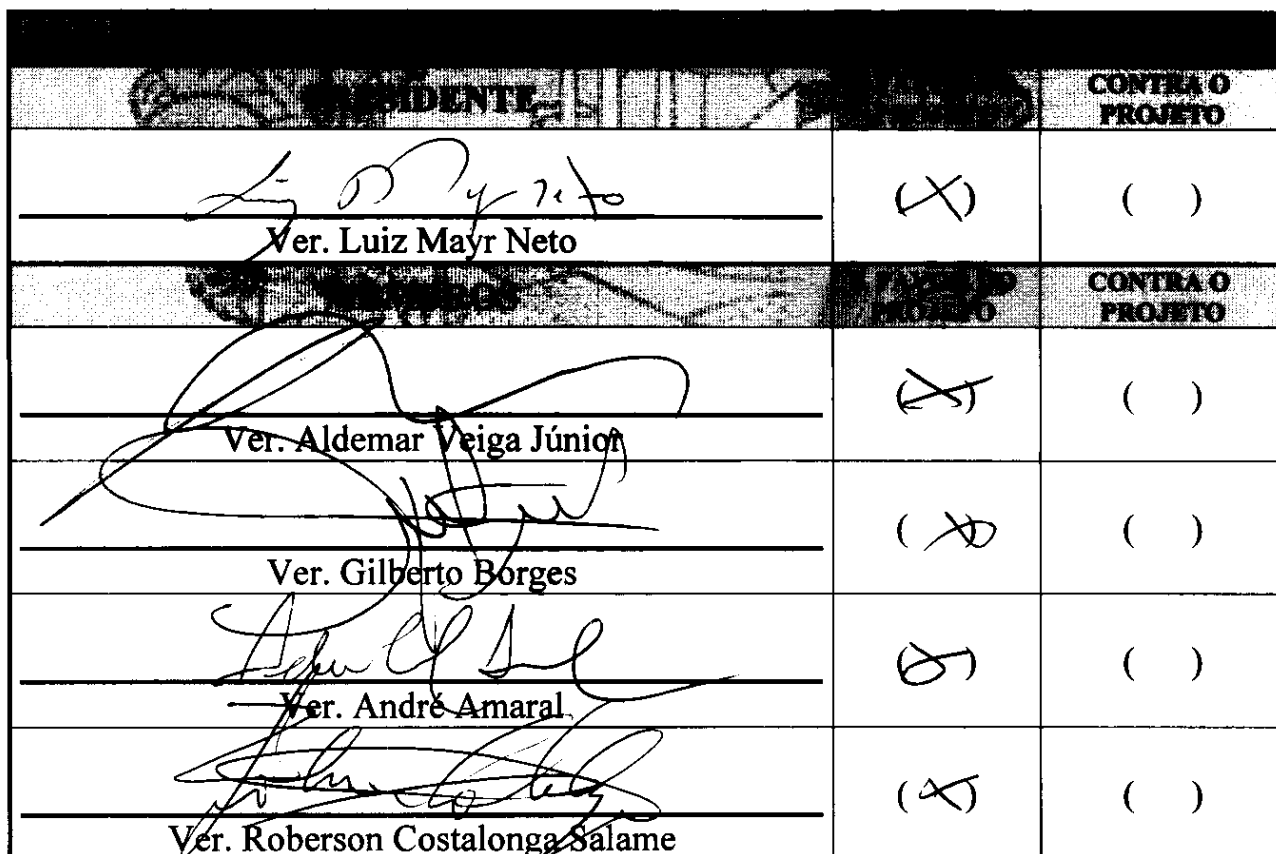 PRESIDENTE
CONTRA O
PROJETO
(X)
( )
Ver. Luiz Mayr Neto
MEMBROS
A FAVOR DO
PROJETO
CONTRA O
PROJETO
(X)
( )
Ver. Aldemar Veiga Júnior
(X)
( )
Ver. Gilberto Borges
(X)
( )
Ver. André Amaral
(X)
( )
Ver. Roberson Costalonga Salame